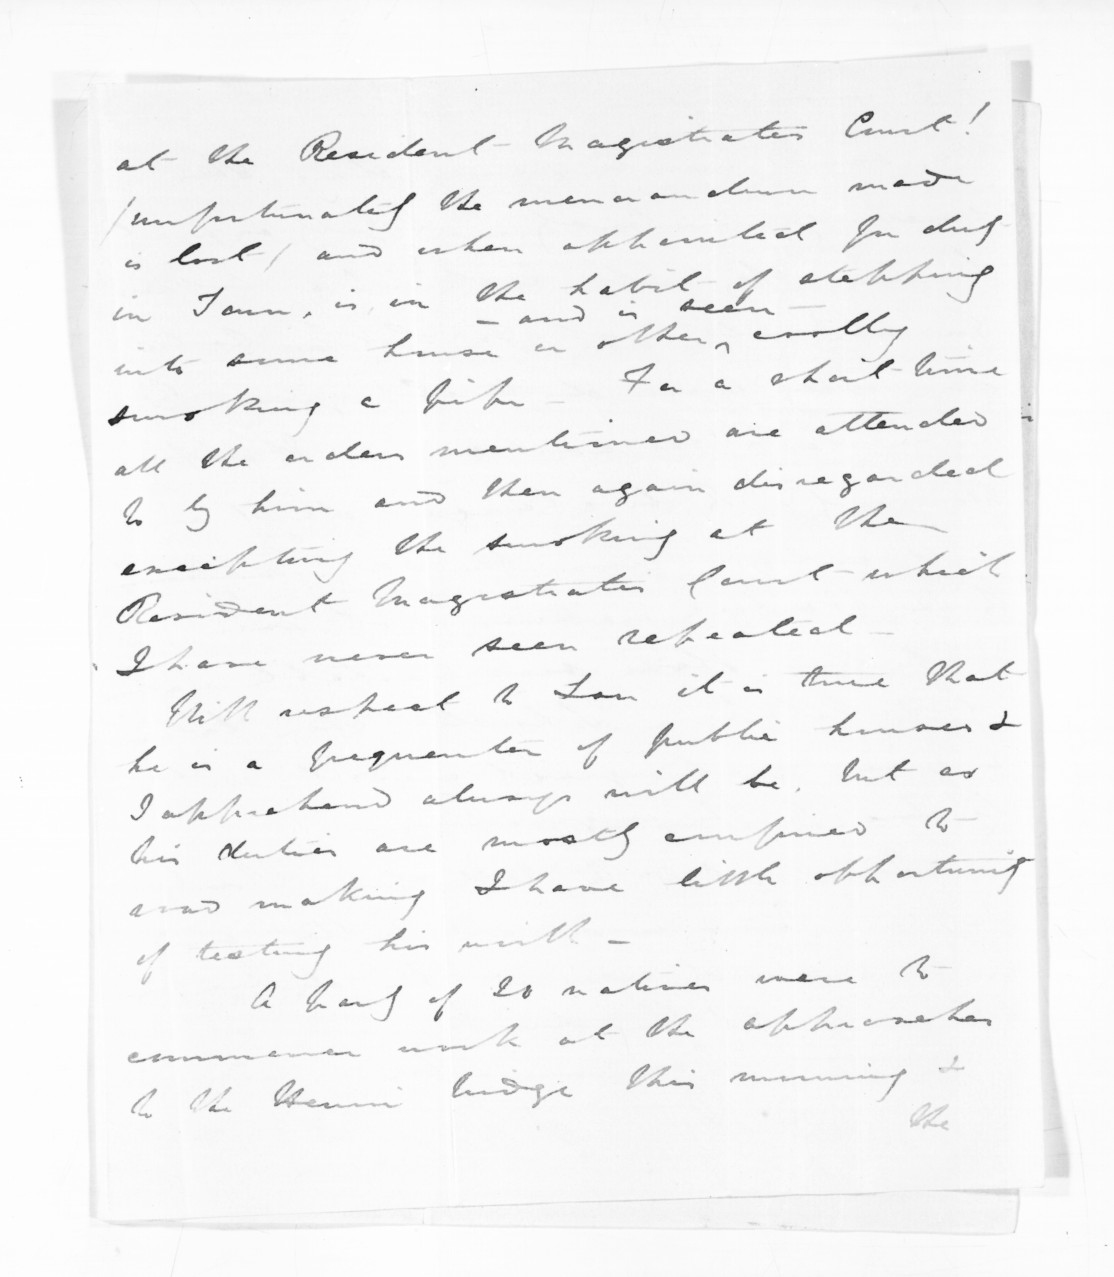 at the Resident Magistrates Court!
(unfortunately the memorandum made
is lost) and when appointed for duty
in Town, is, in the habit of stepping
— and is seen —
into some house or other, coolly
smoking a pipe — For a short time
all the orders mentioned are attended
to by him and then again disregarded
excepting the smoking at the
Resident Magistrates Court which
I have never seen repeated —
With respect to it is true that
he is a frequenter of public houses &
I apprehend always will be, but as
his duties are mostly confined to
road making I have little opportunity
of testing his worth —
A party of 20 natives were to
commence work at the approaches
to the bridge this morning &
the